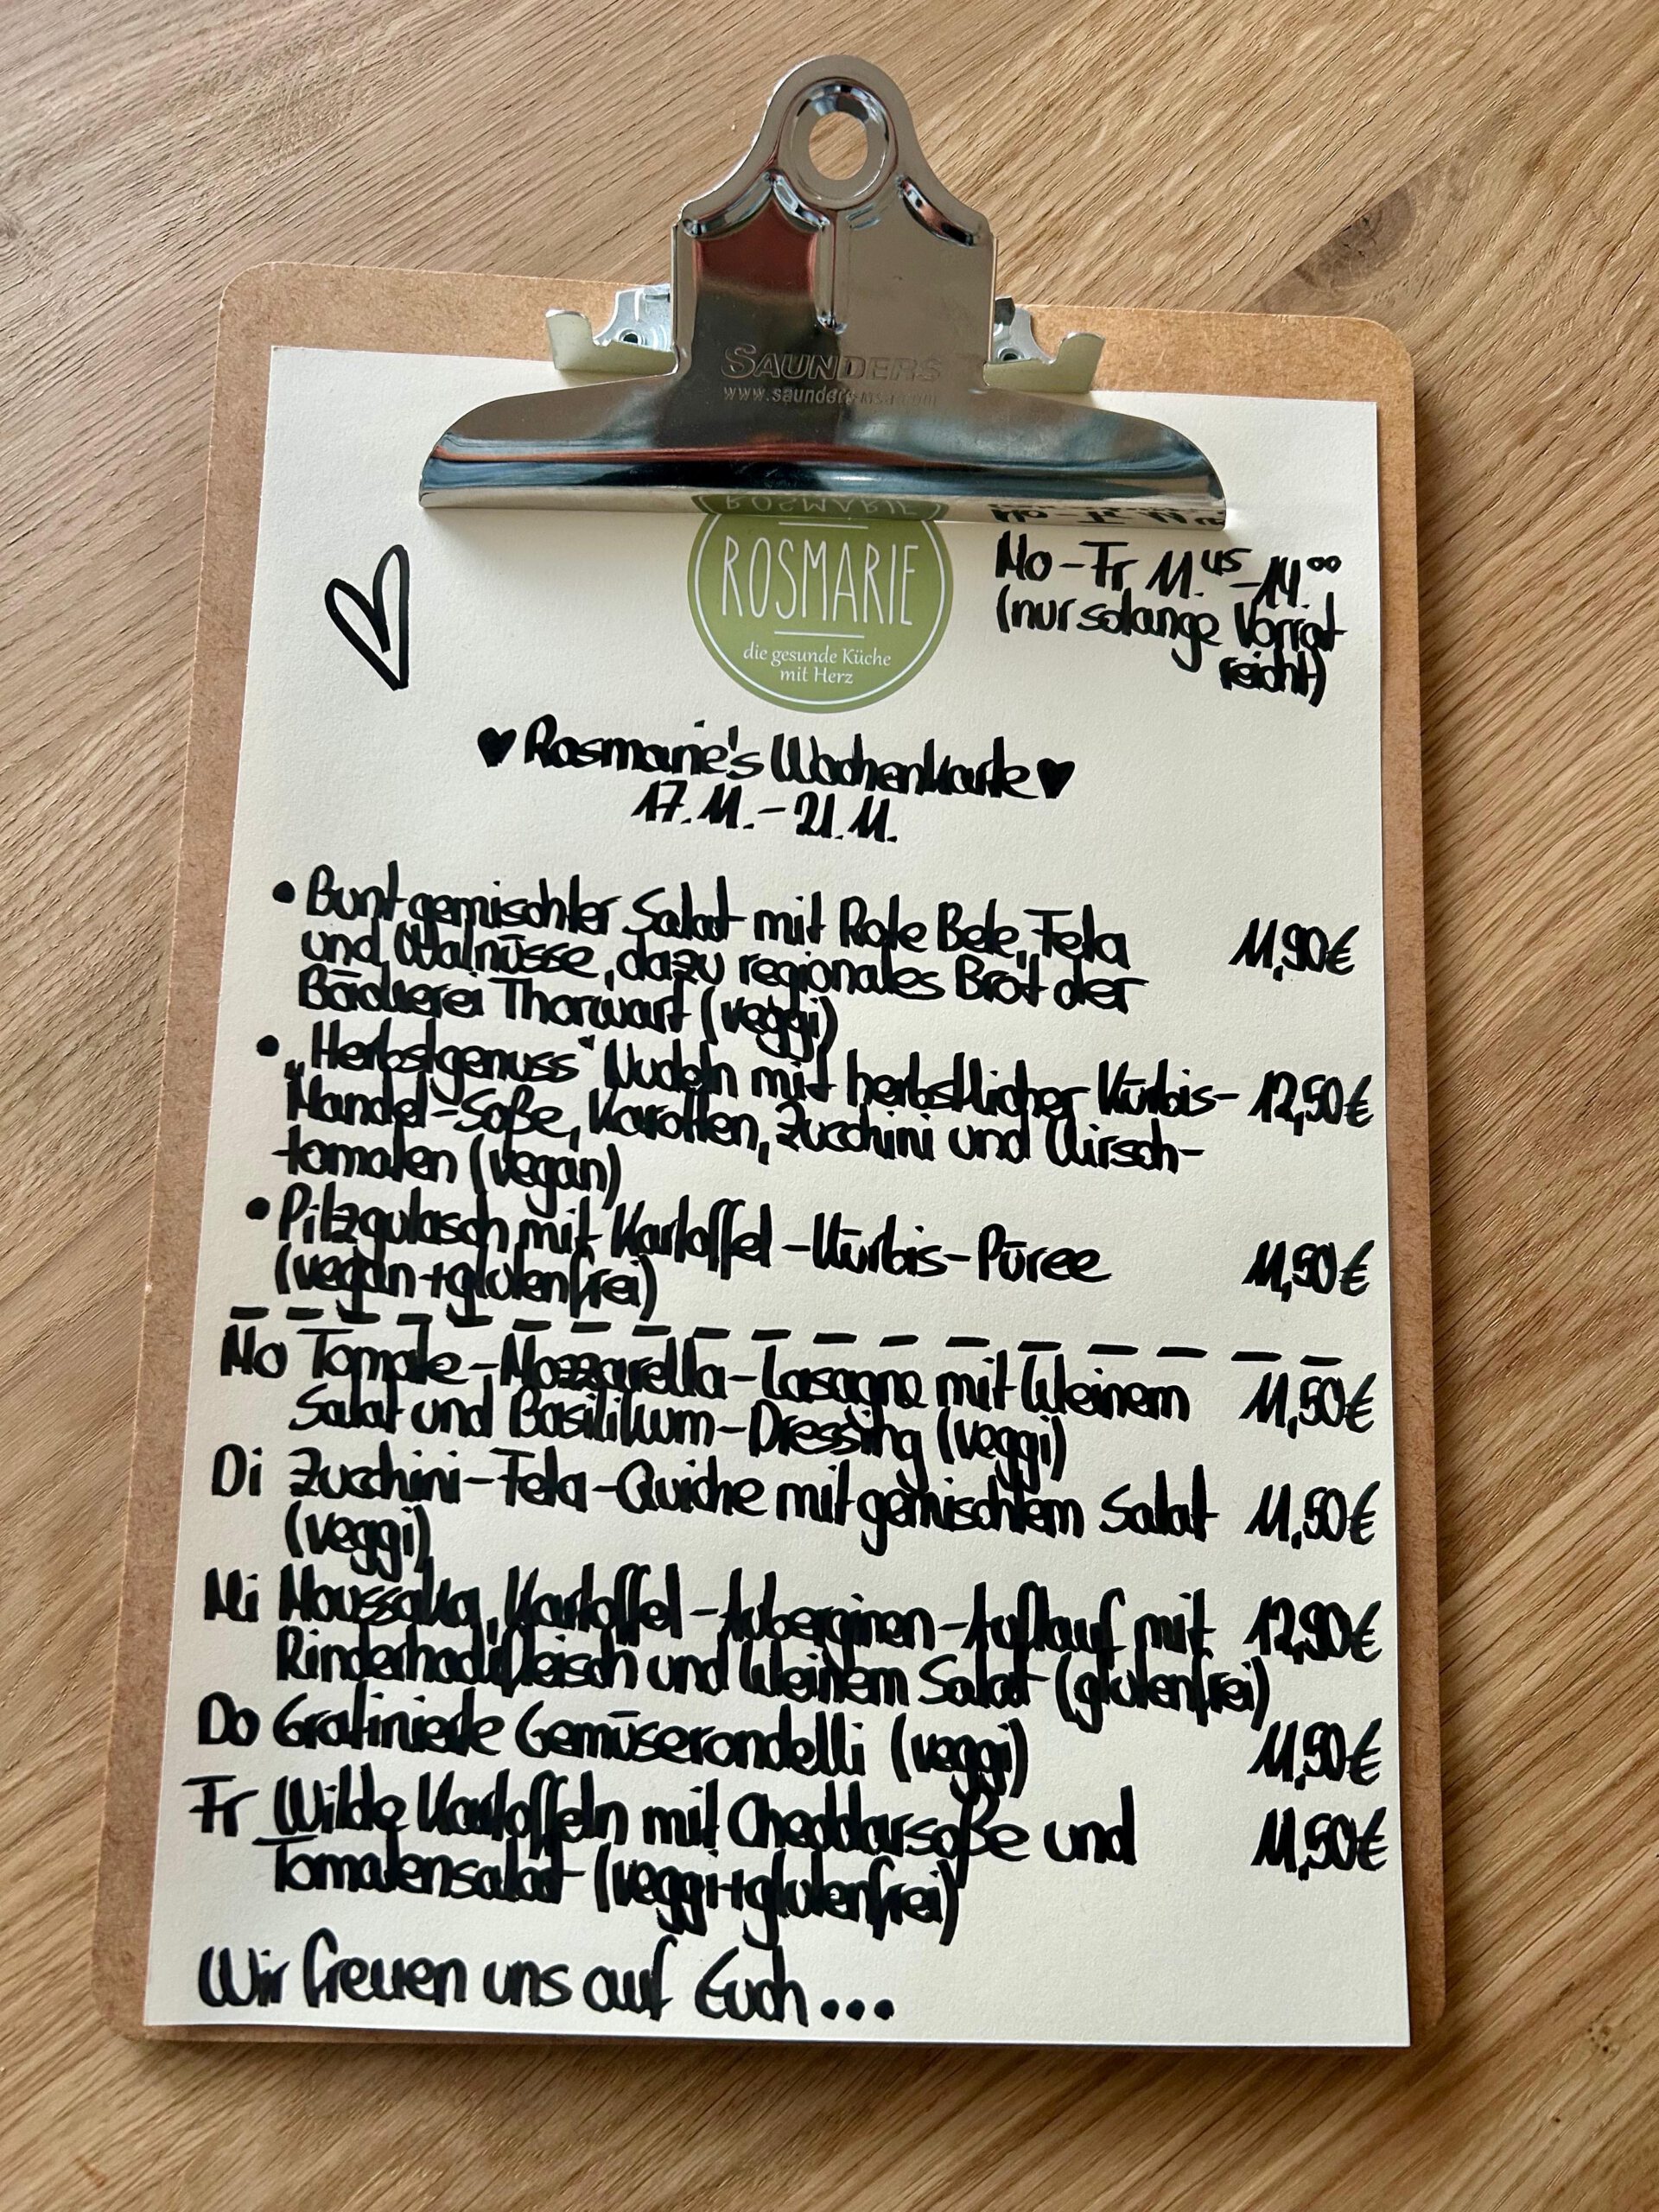 SAUNDERS
www.saunders-usa.com
ROSMARIE
die gesunde Küche
mit Herz
Mo-Fr 11.45-14.00
(nur solange Vorrat
reicht)
♥ Rosmarie's Wochenkarte ♥
17.11.-21.11.
• Bunt gemischter Salat mit Rote Bete, Feta 11,90€
und Walnüsse, dazu regionales Brot der
Bäckerei Thorwart (veggi)
• „Herbstgenuss“ Nudeln mit herbstlicher Kürbis- 12,50€
Mandel-Soße, Karotten, Zucchini und Kirsch-
tomaten (vegan)
• Pilzgulasch mit Kartoffel-Kürbis-Püree 11,50€
(vegan+glutenfrei)
Mo Tomate-Mozzarella-Lasagne mit kleinem 11,50€
Salat und Basilikum-Dressing (veggi)
Di Zucchini-Feta-Quiche mit gemischtem Salat 11,50€
(veggi)
Mi Moussaka, Kartoffel-Auberginen-Auflauf mit 12,90€
Rinderhackfleisch und kleinem Salat (glutenfrei)
Do Gratinierte Gemüserondelli (veggi) 11,50€
Fr Wilde Kartoffeln mit Cheddarsoße und 11,50€
Tomatensalat (veggi+glutenfrei)
Wir freuen uns auf Euch...